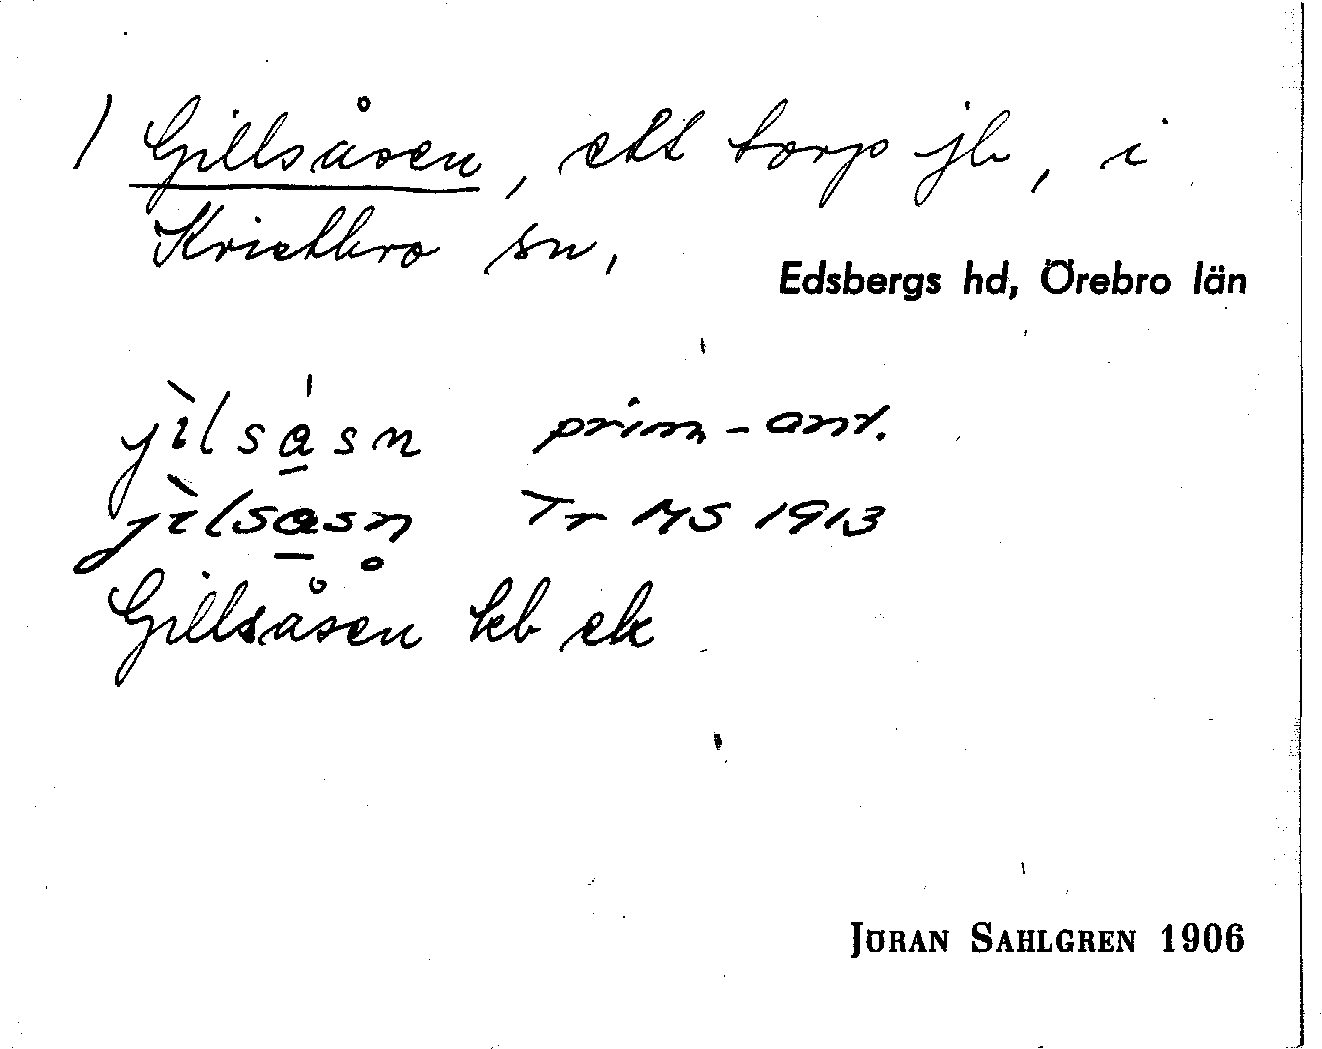 1 Gillsåsen, ett torp jb, i
Kristbro sn,
Edsbergs hd, Örebro län
jìlsåsn prim-ant.
jìlsåsn Tr MS 1913
Gillsåsen kb ek
JÖRAN SAHLGREN 1906